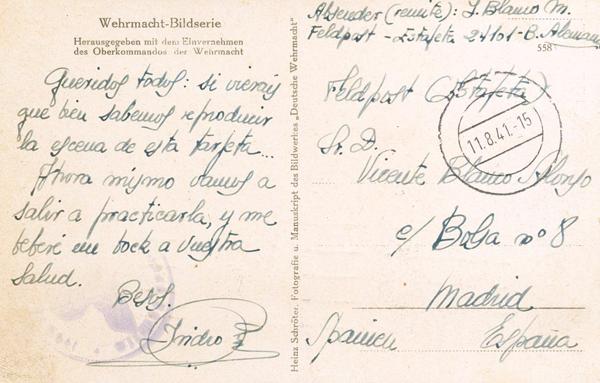 Wehrmacht-Bildserie
Herausgegeben mit dem Einvernehmen
des Oberkommandos der Wehrmacht
Queridos todos: si vierais
que bien sabemos reproducir
la escena de esta tarjeta...
Ahora mismo vamos a
salir a practicarla, y me
beberé un bock a vuestra
salud.
Besos.
Heinz Schröter. Fotografie u. Manuskript des Bildwerkes „Deutsche Wehrmacht"
Absender (remite): J. Blanco M.
Feldpost - Estafeta 24101-B. Alemania
558
Feldpost (Estafeta)
11.8.41.-15
Sr. D.
Vicente Blanco Alonso
c/ Bolsa nº 8
Madrid
Spanien España